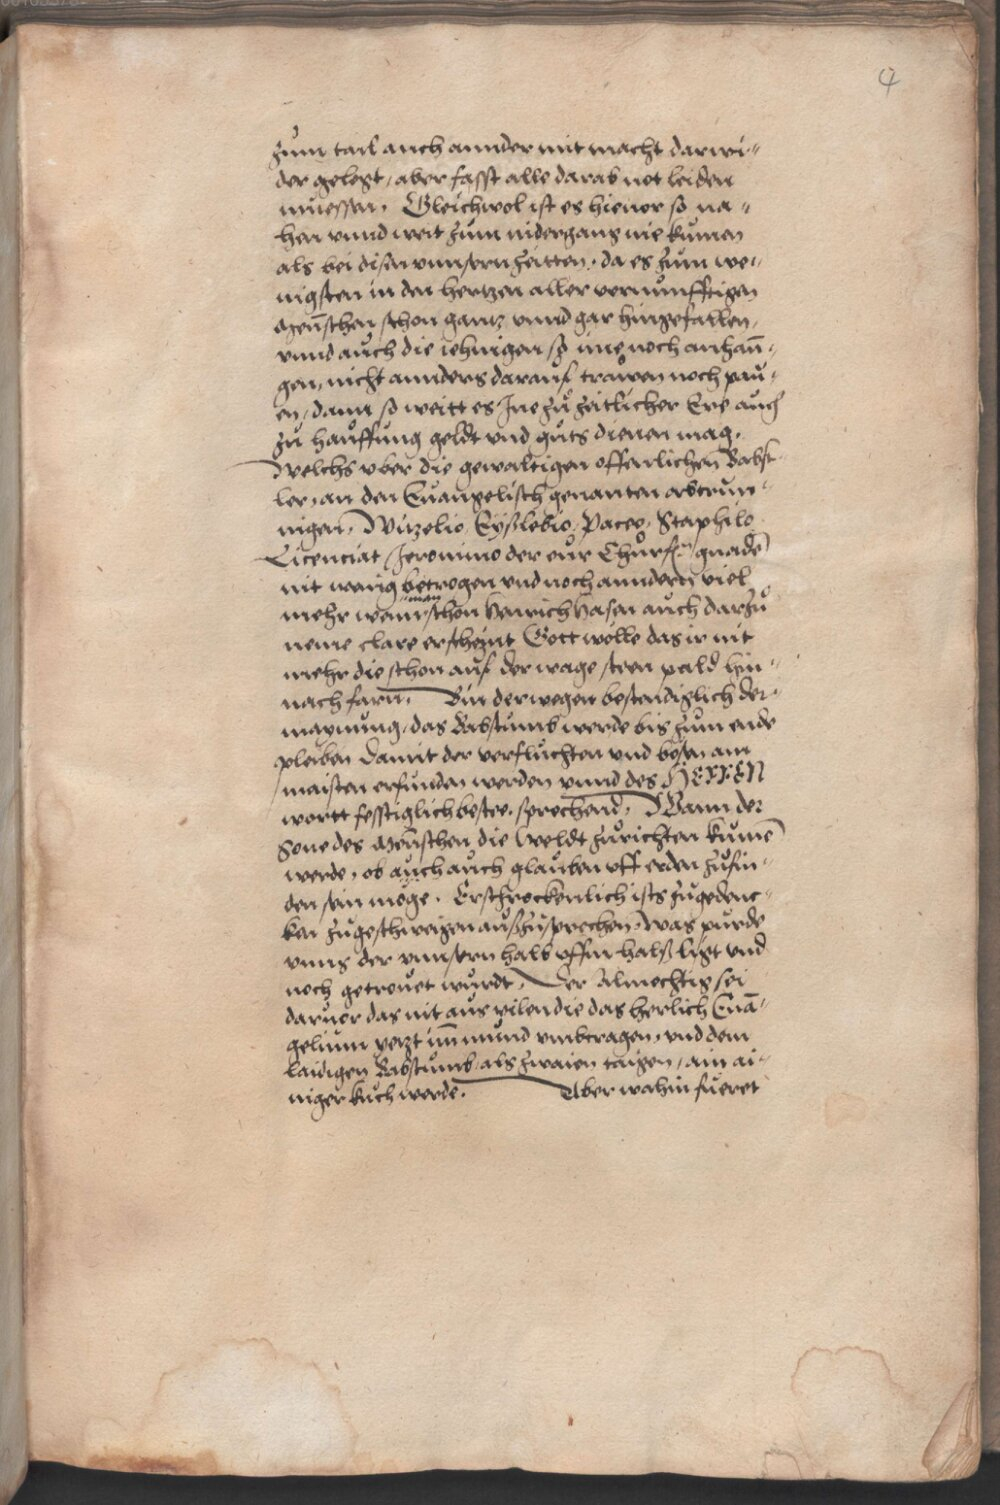 4
zum tail auch annder mit macht darwi-
der gelegt, aber fasst alle darab not leiden
muessen. Gleichwol ist es hieuor so na-
hen vnnd weit zum nidergang nie kumen
als bei disen vnnsern zeitten, da es zum we-
nigsten in den hertzen aller vernünfftigen
Menschen schon gantz vnnd gar hingefallen,
vnnd auch die jehnigen so ime noch anhan-
gen, nicht annders darauf trawen noch pau-
en, dann so weitt es Ine zu zeitlicher Ere auch
zu hauffung geldt vnd guts dienen mag.
Welchs vber die gewaltigen offenlichen Babst-
ler, an den Euangelisch genanten abtrun-
nigen, Witzelio, Eyslebio, Paceo, Staphilo
Licenciat Jeronimo der eur Churf. gnaden
nit wenig betrogen vnd noch anndern viel
mehr wann schon Hainrich Hasen auch darzu
neme clare erscheint Gott wolle das ir nit
mehr die schon auf der wage steen pald hin-
nach farn. Bin derwegen bestendiglich der
maynung, das Babstumb werde bis zum ende
pleiben damit der verfluchten vnd bösen am
maisten erfunden werden vnnd des HERREN
wortt fesstiglich bestee, sprechend. Wann der
Sone des Menschen die Weldt zurichten kumen
werde, ob auch auch glauben vff erden zufin-
den sein möge. Erschrockenlich ists zugedenc-
ken zugeschweigen auszusprechen, was purde
vnns der vnnsern halb vffm hals ligt vnd
noch getreuet wurdt, Der Almechtig sei
daruor das nit aus vilen die das herlich Euan-
gelium yetzt im mund vmbtragen, vnd dem
laidigen Babstumb, als zwaien taigen, ain ai-
niger kuch werde. Aber wahin fueret